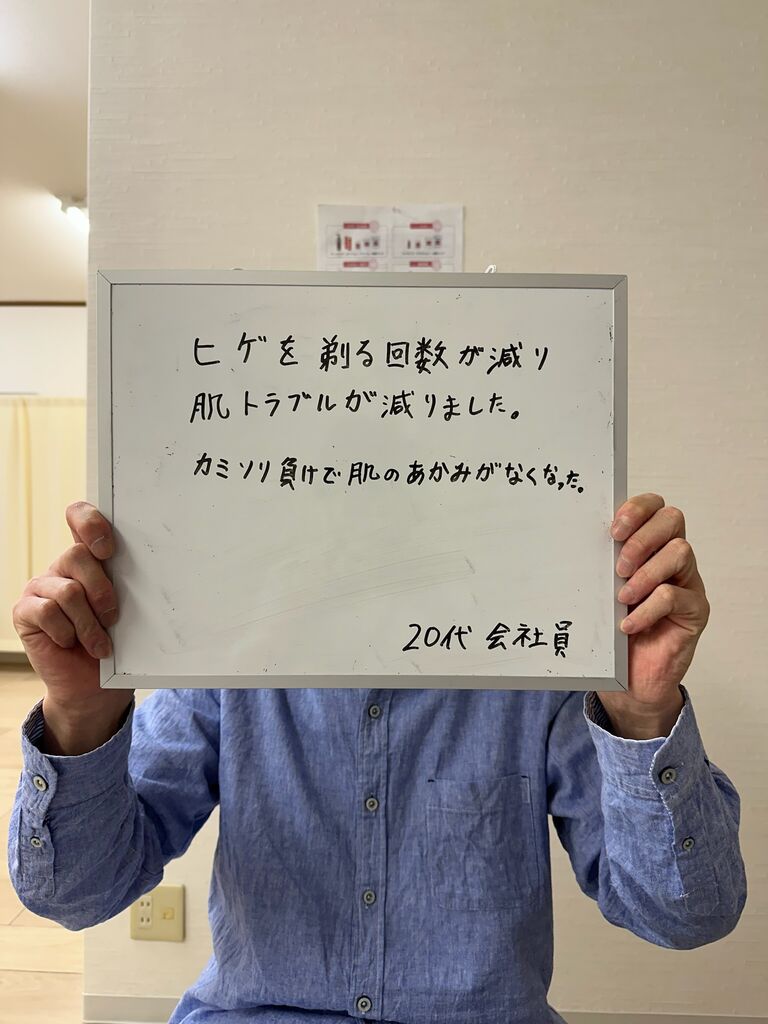 ヒゲを剃る回数が減り
肌トラブルが減りました。
カミソリ負けで肌のあかみがなくなった。
20代 会社員